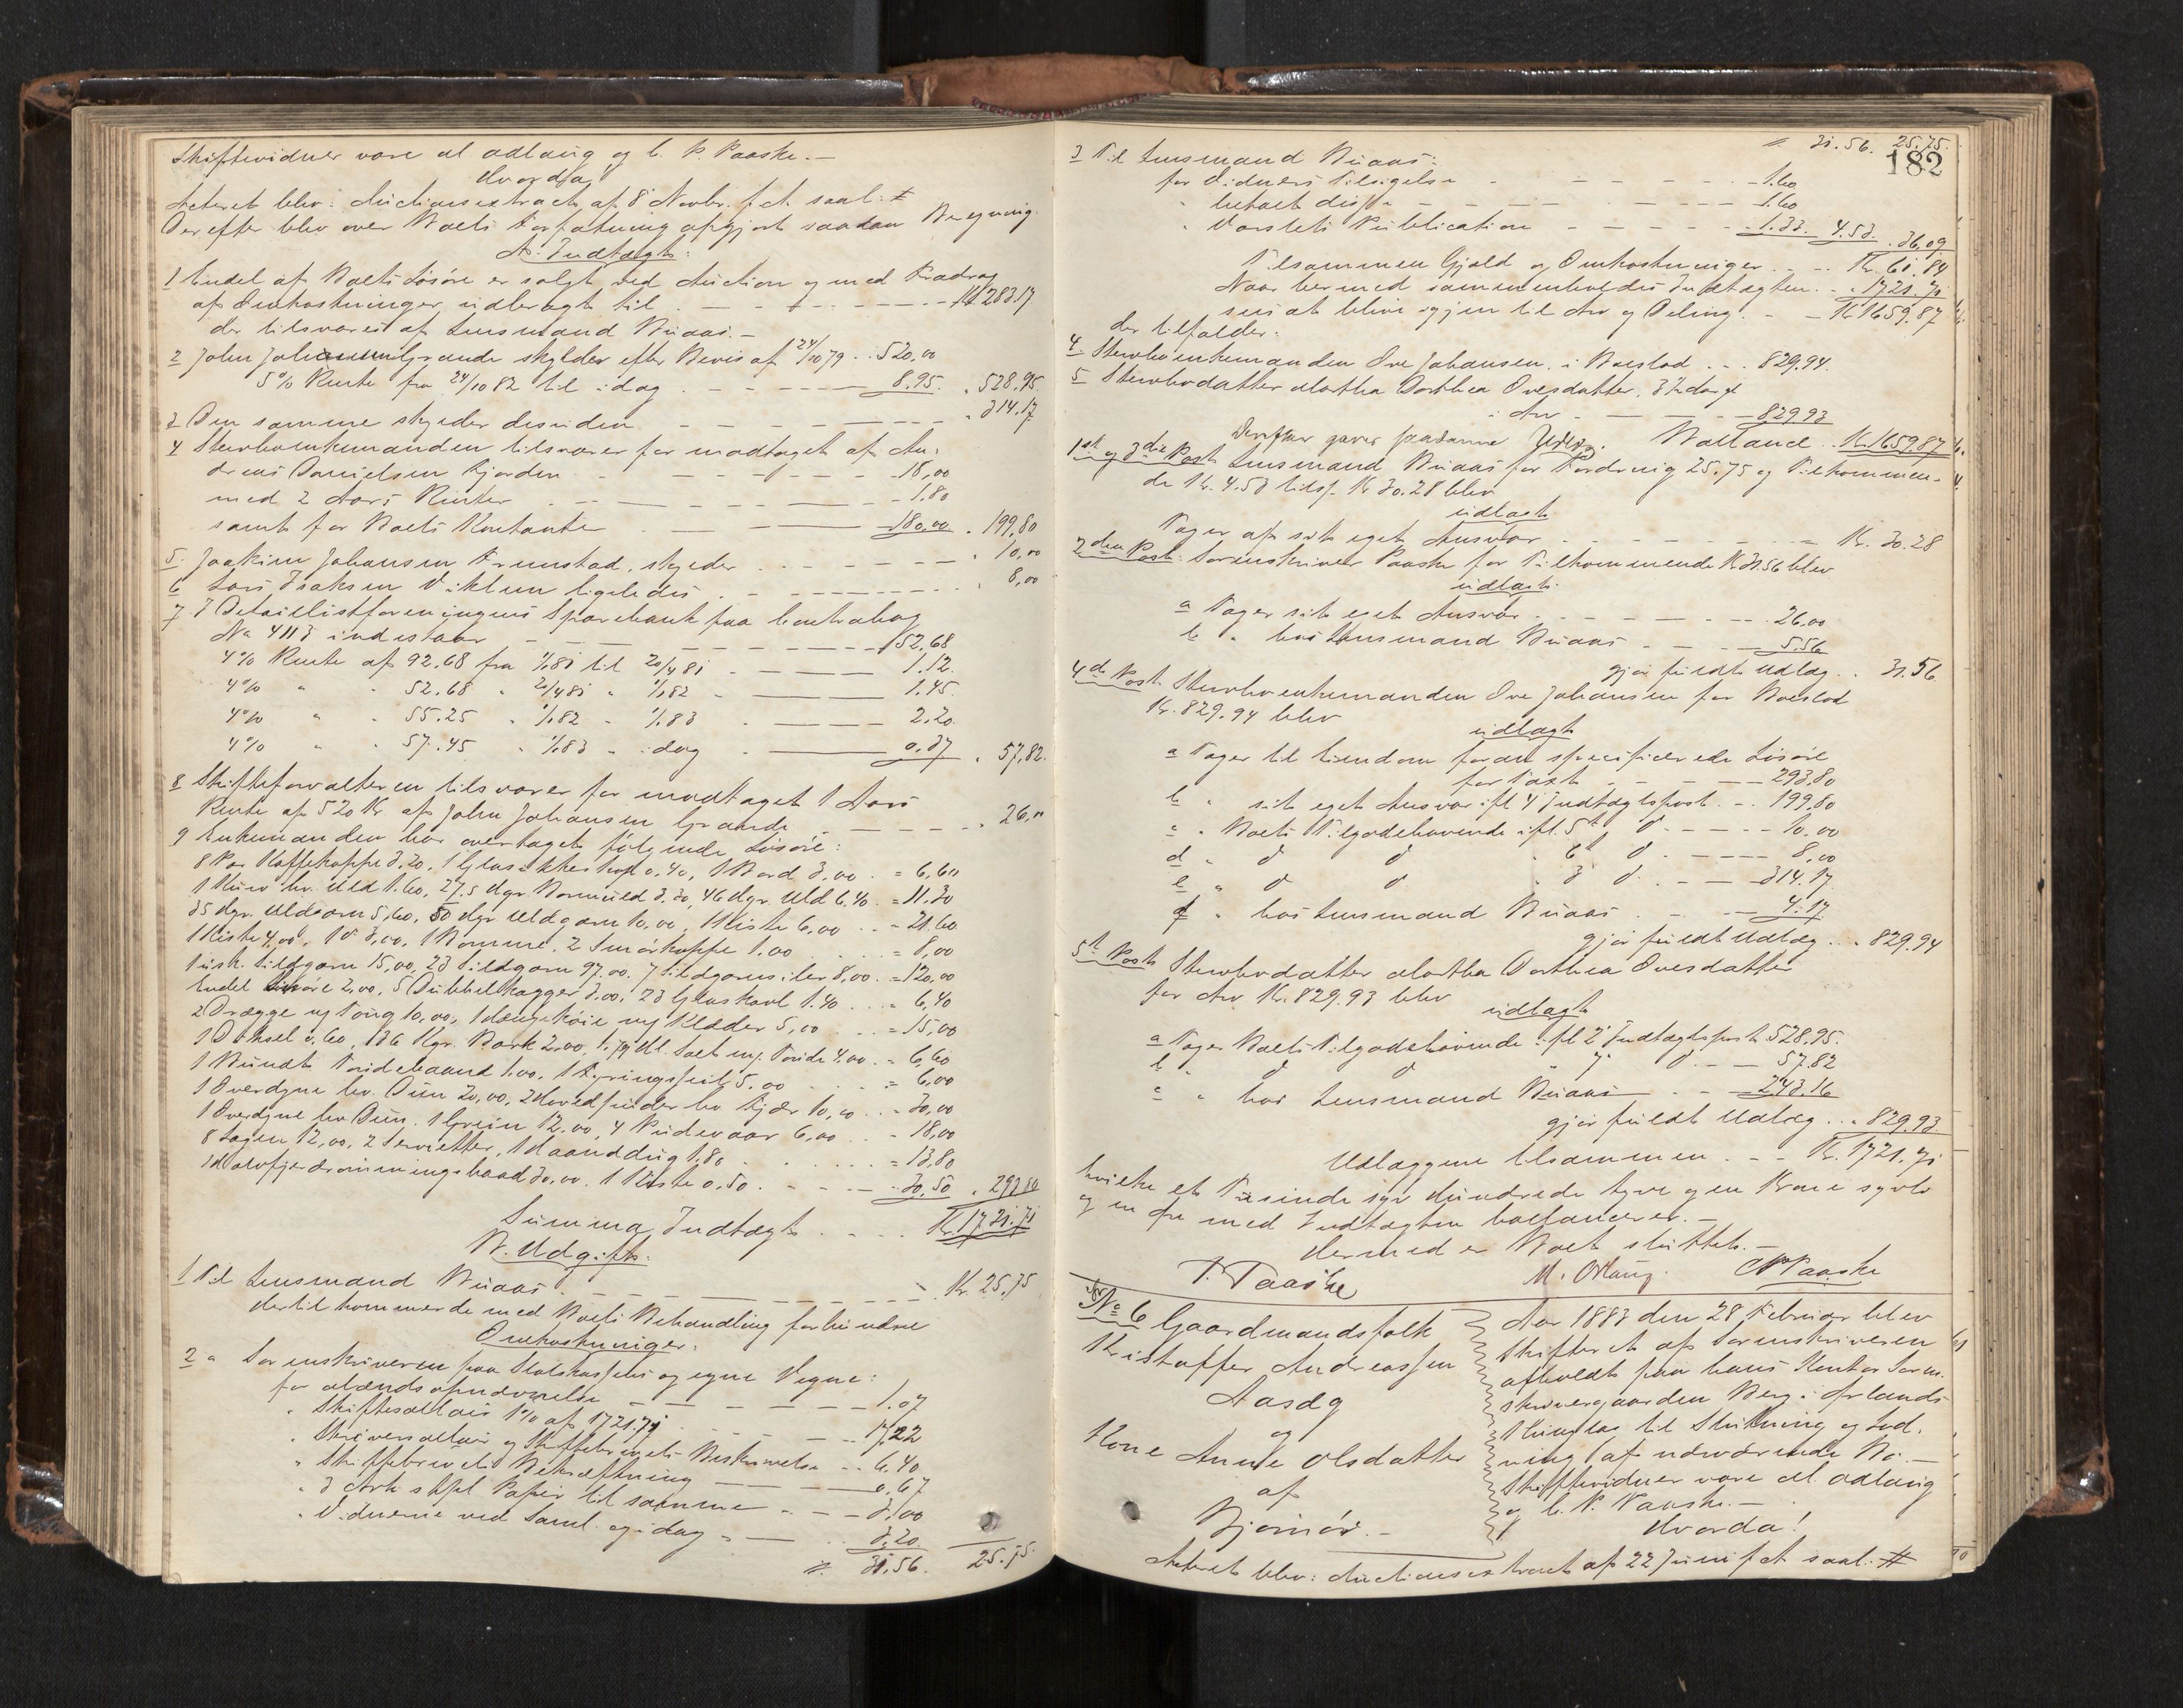 Skiftevidner vare M Ødlaug og C. P. Paaske.-
Hvorda
Acteret blev: Auctionsextract af 8 Novbr. f. A. saal: #
Derefter blev over Boets Forfatning opgjort saadan Beregning.
A. Indtægt:
1 Endel af Boets Løsøre er solgt ved Auction og med Fradrag
af Omkostninger udbragt til - - - - Kr. 283.17
der tilsvares af Lensmand Buaas.-
2 John Johansen Grande skylder efter Bevis af 24/10 79 . . 520,00
5% Rente fra 24/10 82 til idag - - - 8.95. " 528.95.
3 Den samme skylder desuden - - - " 314.17
4 Sterboenkemanden tilsvarer for modtaget af An-
dreas Danielsen Fjorden - - - 18,00
med 2 Aars Renter - - - 1.80
samt for Boets Kontante - - - 180,00 . 199,80
5. Joakim Johansen Frunstad, skylder - - - " 10,00
6 Lars Isaksen Viklem ligeledes - - - " 8,00
7 I Detaillistforeningens Sparebank paa Contrabog
No 4113 indestaar - - - 52.68
4% Rente af 92.68 fra 1/1 81 til 20/4 81 - - - 1.12.
4% " " 52.68 " 20/4 81 " 1/1 82 - - - 1.45.
4% " " 55.25 " 1/1 82 " 1/1 83 - - - 2.20.
4% " " 57.45 " 1/1 83 " idag - - - 0.37 " 57,82.
8 Skifteforvalteren tilsvarer for modtaget 1 Aars
Rente af 520 Kr. af John Johansen Grande - - - " 26,00
9 Enkemanden har overtaget følgende Løsøre:
8 Par Kaffekoppe 3.20, 1 Glas 0.40, 1 Bord 3,00 . = 6,60
1 Kurv hv. Uld 1.60, 27.5 Hgr. Bomuld 3.30, 46 Hgr. Uld 6.40 . = 11.30
35 Hgr. Uldgarn 5,60, 50 Hgr Uldgarn 10,00, 1 Kiste 6,00 . . = 21.60
1 Kiste 4,00, 1 do 3,00, 1 Bomme, 2 Smørkoppe 1.00 = 8,00
1 usk. Sildgarn 15,00, 23 Sildgarn 97.00, 7 Sildgarnsiler 8,00 . = 120,00
Endel 2,00, 5 Dubbelkagger 3.00, 23 Glaskavl 1.40 . . = 6,40
2 Drægge og Toug 10,00, 1 Hængekøie og Klæder 5,00 . . = 15,00
1 Øksel 0.60, 136 Kgr. Bark 2,00, 1.79 Hl. Salt og Tønde 4.00 . = 6,60
1 Bundt Tøndebaand 1.00, 1 Fyringsseil 5.00 . . . = 6,00
1 Overdyne hv. Dun 20,00, 2 Hovedpuder hv Fjær 10,00 . . = 30,00
1 Overdyne hv Dun, 1 Grøn 12.00, 4 Pudevaar 6,00 . . = 18,00
8 Lagen 12,00, 2 Servietter, 1 Haanddug 1.80 . . . = 13,80
1 Halvfjerdrømmingsbaad 30,00, 1 Kiste 0.50 . - - 30.50 . 293.80
Summa Indtægt . . . . Kr. 1721.71
B. Udgift:
1 Til Lensmand Buaas - - - Kr. 25.75
dertil kommer de med Boets Behandling forbundne
Omkostninger:
2 a Sorenskriveren paa Statskassens og egne Vegne:
for Mændsopnævnelse - - - 1.07
" Skiftesallair 1% af 1721.71 - - - 17,22
" Skriversallair og Skiftebrevets Beskrivelse . . 6.40
" Skiftebrevets Bekræftning - - - 0.67
" 3 Ark stpl Papir til samme - - - 3,00
" Vidnerne ved Saml. og idag = - - - 3.20
%. 31.56. 25.75.
182
%. 31.56. 25.75.
3 Til Lensmand Buaas:
for Vidners Tilsigelse - - - 1.60
" betalt disse - - - 1.60
" Varslets Publication - - - 1.33. 4.53. 36,09
Tilsammen Gjæld og Omkostninger . . . Kr. 61.84
Naar hermed sammenholdes Indtægten . . " 1721.71
sees at blive igjen til Arv og Deling. - - Kr 1659.87
der tilfalder:
4. Sterboenkemanden Ove Johansen, i Boeslod . . . 829.94.
5 Sterbodatter Martha Dorthea Ovesdatter,
i Arv - - - 829.93
Ballance . Kr. 1659.87
Derefter gaves saadanne Udlæg.
1ste og 3die Post Lensmand Buaas for Fordring 25.75 og Tilkommen-
de Kr. 4.53 tils. Kr 30.28 blev
udlagt
Tager af sit eget Ansvar - - - Kr. 30.28
2den Post: Sorenskriver Paaske for Tilkommende Kr 31.56 blev
udlagt:
a Tager sit eget Ansvar - - - 26,00
b " hos Lensmand Buaas - - - 5.56
gjør fuldt Udlæg . . 31.56
4de Post Sterboenkemanden Ove Johansen for Boeslod
Kr. 829.94 blev
udlagt
a Tager til Eiendom foran specificerede Løsøre
for Taxt - - - 293.80
b " sit eget Ansvar ifl 4 Indtægtspost . - . 199.80
c " Boets Tilgodehavende ifl. 5te do - - - 10.00
d " do do " 6te do - - - 8,00
e " do do " 3 do - - - 314.17
f " hos Lensmand Buaas - - - 4.17
gjør fuldt Udlæg . . . 829.94
5te Post Sterbodatter Martha Dorthea Ovesdatter
for Arv Kr. 829.93 blev
udlagt
a Tager Boets Tilgodehavende ifl 2 Indtægtspost 528.95.
b " do do " 7 do - - 57.82
c " hos Lensmand Buaas - - - 243.16
gjør fuldt Udlæg . . . 829.93
Udlæggene tilsammen . . - Kr. 1721.71
hvilke et Tusinde syv Hundrede tyve og en Krone sytti
og en Øre med Indtægten ballancerer.-
Hermed er Boet sluttet.-
P. Paaske M. Ødlaug. C P Paaske
No 6 Gaardmandsfolk
Kristoffer Andreassen
Aasdg
og
Kone Anne Olsdatter
af
Bjørnør.-
Aar 1883 den 28 Februar blev
Skifteret af Sorenskriveren
afholdt paa hans Kontor Soren-
skrivergaarden Berg i Ørlands
Thinglag til Slutning og Lod-
ning af nærværende Bo.-
Skiftevidner vare M Ødlaug
og C. P. Paaske.-
Hvorda!
Acteret blev: Auctionsextract af 22 Juni f A saal: #